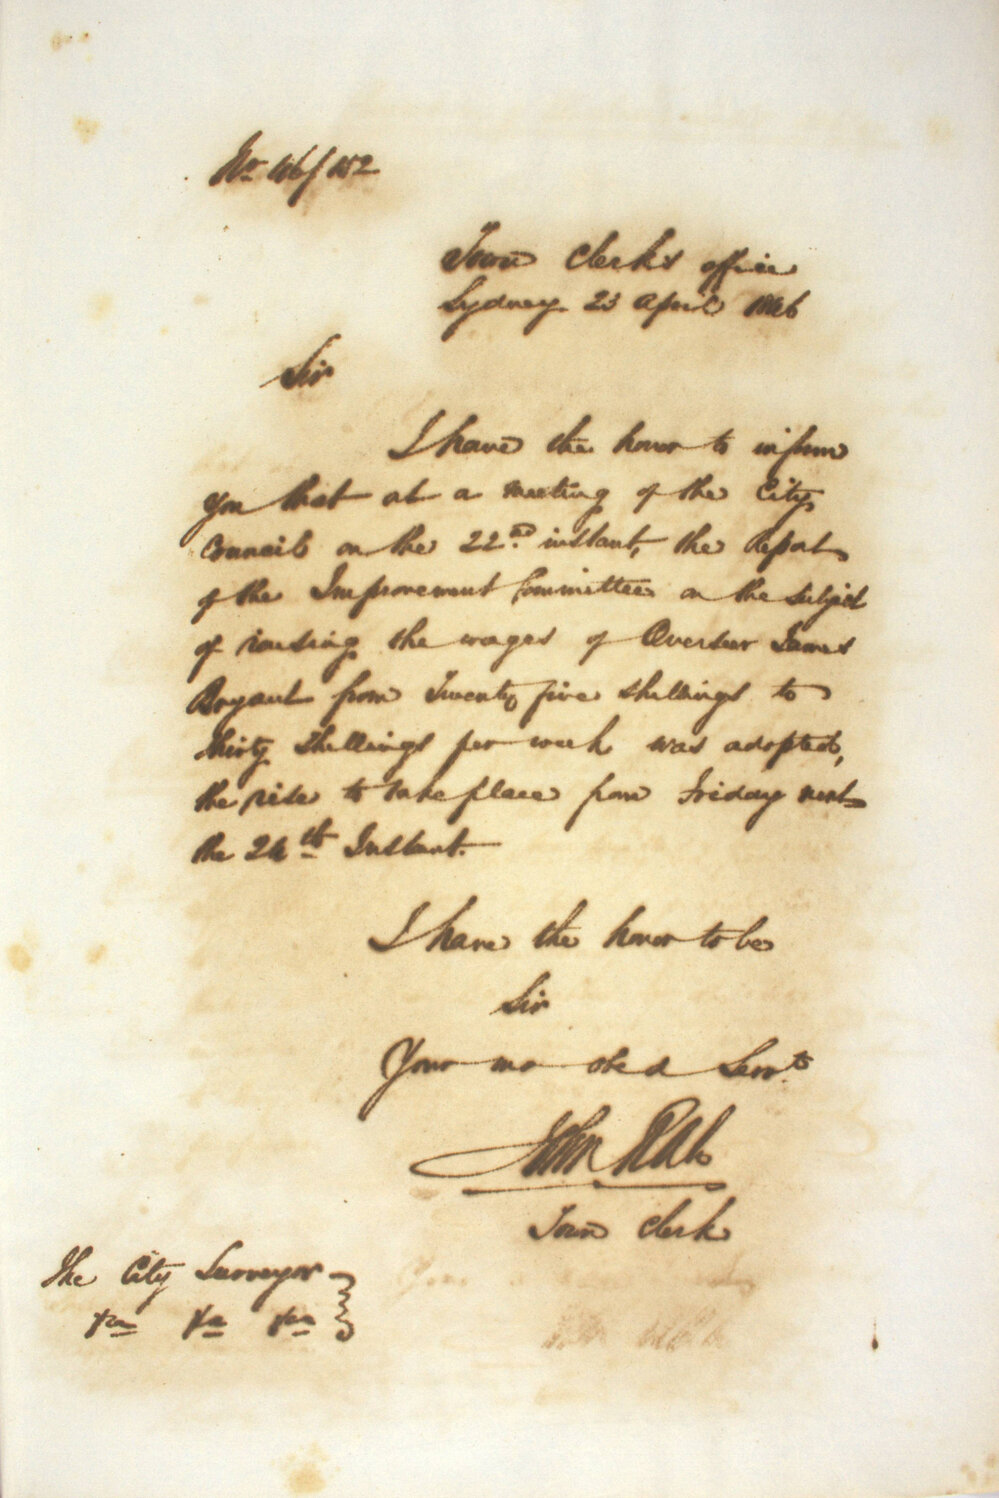 No 46/152
Town Clerks office
Sydney 23 April 1846
Sir
I have the honor to inform
you that at a meeting of the City
Council on the 22nd instant, the Report
of the Improvement Committee on the subject
of raising the wages of Overseer James
Bryant from Twenty five shillings to
thirty shillings per week was adopted,
the rise to take place from Friday next
the 24th Instant.
I have the honor to be
Sir
Your mo obed Servt
John
Town Clerk
The City Surveyor